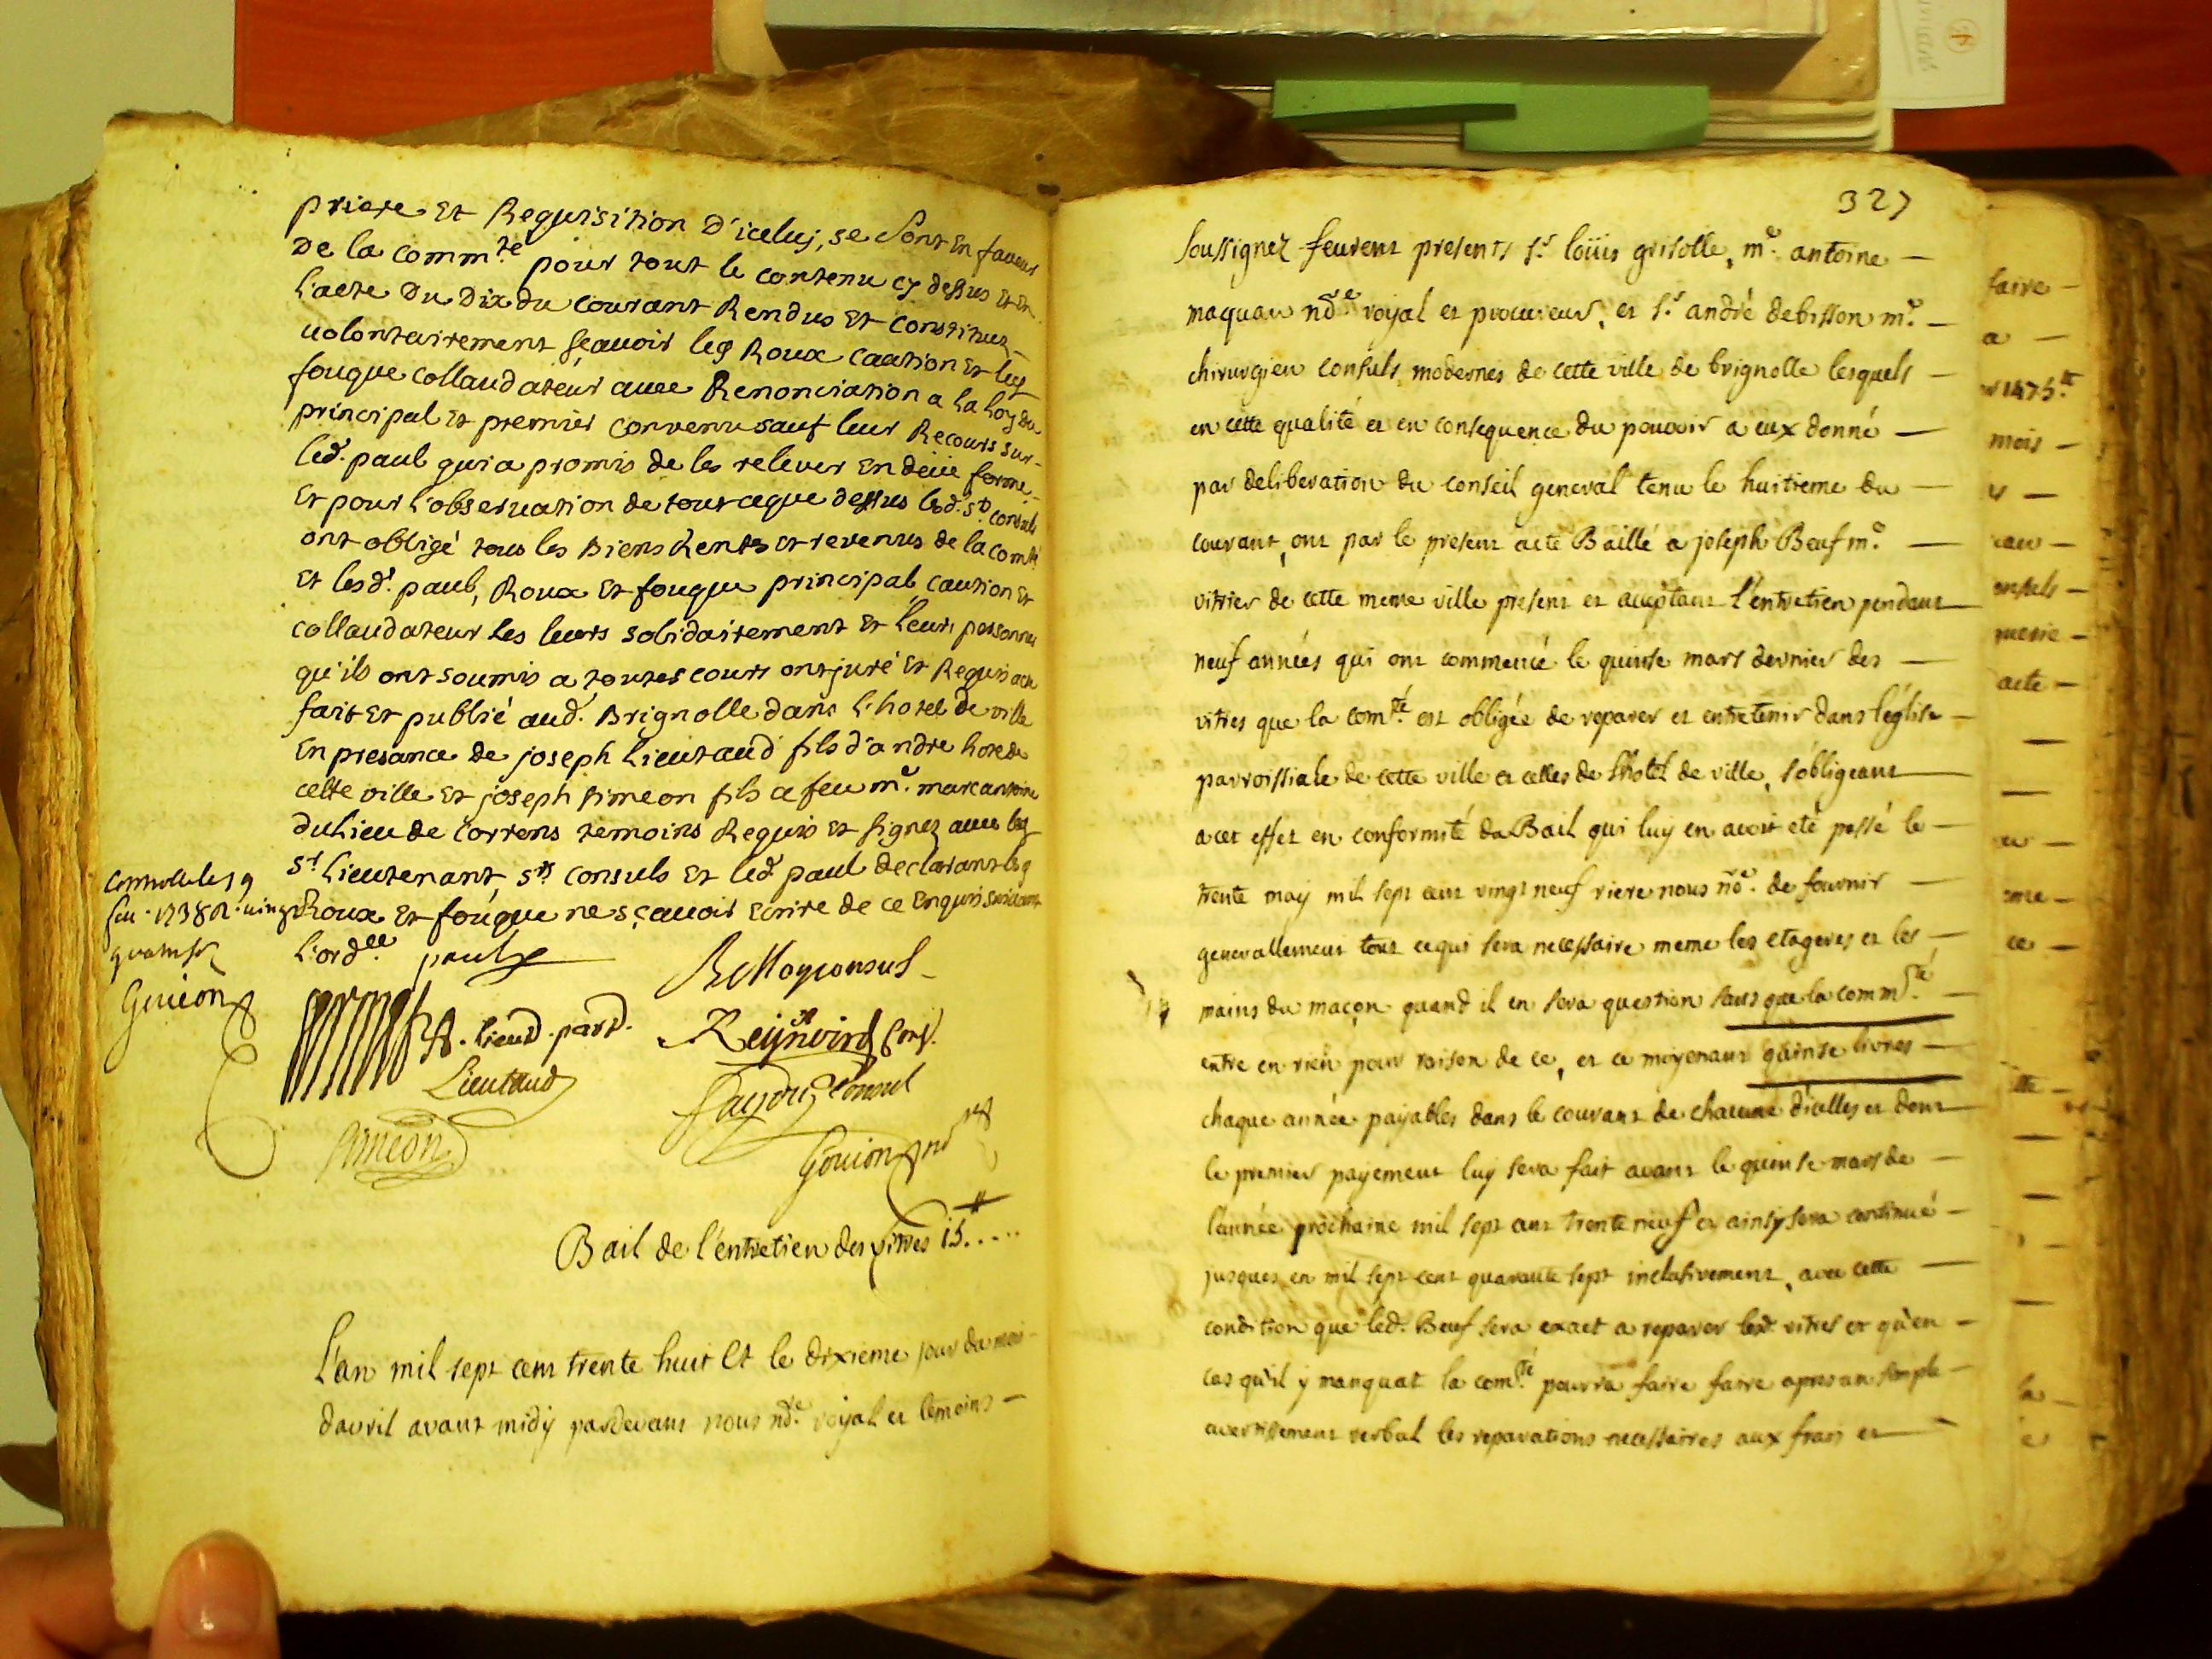 priere et Requisition d'iceluj, se sont en faveur
de la comm.té pour tout le contenu cy dessus et en
l'acte du dix du courant Rendus et constitues
volontairement sçavoir led Roux caution et led
fouque collaudateur avec Renonciation a la loy du
principal et premier convenu sauf leur Recours sur
led. paul qui a promis de les relever en deüe forme
et pour l'observation de tout ceque dessus lesd. srs consuls
ont obligé tous les Biens Rentes et revenus de la com.té
et lesd. paul, Roux et fouque principal, caution et
collaudateur les leurs solidairement et leurs personnes
qu'ils ont soumis a toutes cours ont juré et Requis acte
fait et publié aud. Brignolle dans l'hotel de ville
en presance de joseph Lieutaud fils d'andre hote de
cette ville et joseph simeon fils a feu me. marc antoine
du Lieu de Correns temoins Requis et signez avec led
sr. Lieutenant, srs consuls et led paul declarant led
Roux et fouque ne sçavoir ecrire de ce enquis suivant
l'ord.ce
controlle le 19
1738
Gouion
paul
consul
Lieut. part.
Reynoird Cons.
Lieutaud
consul
simeon
Gouion
Bail de l'entretien des vitres 15.....
L'an mil sept cent trente huit et le dixieme jour du mois
davril avant midy pardevant nous nore. royal et temoins
327
soussignez feurent presents sr. loüis grisolle, me. antoine
maquan nore royal et procureur, et sr. andré debisson me.
chirurgien consuls modernes de cette ville de brignolle lesquels
en cette qualité et en consequence du pouvoir a eux donné
par deliberation du conseil general tenu le huitieme du
courant, ont par le present acte Baillé a joseph Beuf me.
vitrier de cette meme ville present et acceptant l'entretien pendant
neuf années qui ont commencé le quinse mars dernier des
vitres que la com.té est obligée de reparer et entretenir dans l'eglise
parroissiale de cette ville et celles de lhotel de ville, sobligeant
acet effet en conformité du Bail qui luy en avoit eté passé le
trente may mil sept cent vingt neuf riere nous nore. de fournir
generallement tout cequi sera necessaire meme les etageres et les
mains du maçon quand il en sera question sans que la comm.té
entre en rien pour raison de ce, et ce moyenant quinse livres
chaque année payables dans le courant de chacune d'icelles et dont
le premier payement luy sera fait avant le quinse mars de
l'année prochaine mil sept cent trente neuf et ainsy sera continué
jusques en mil sept cent quarante sept inclusivement, avec cette
condition que led. Beuf sera exact a reparer lesd. vitres et qu'en
cas qu'il y manquat la com.té pourra faire faire apres un simple
avertissement verbal les reparations necessaires aux frais et
faire
a
1475
mois
acte
ce
la